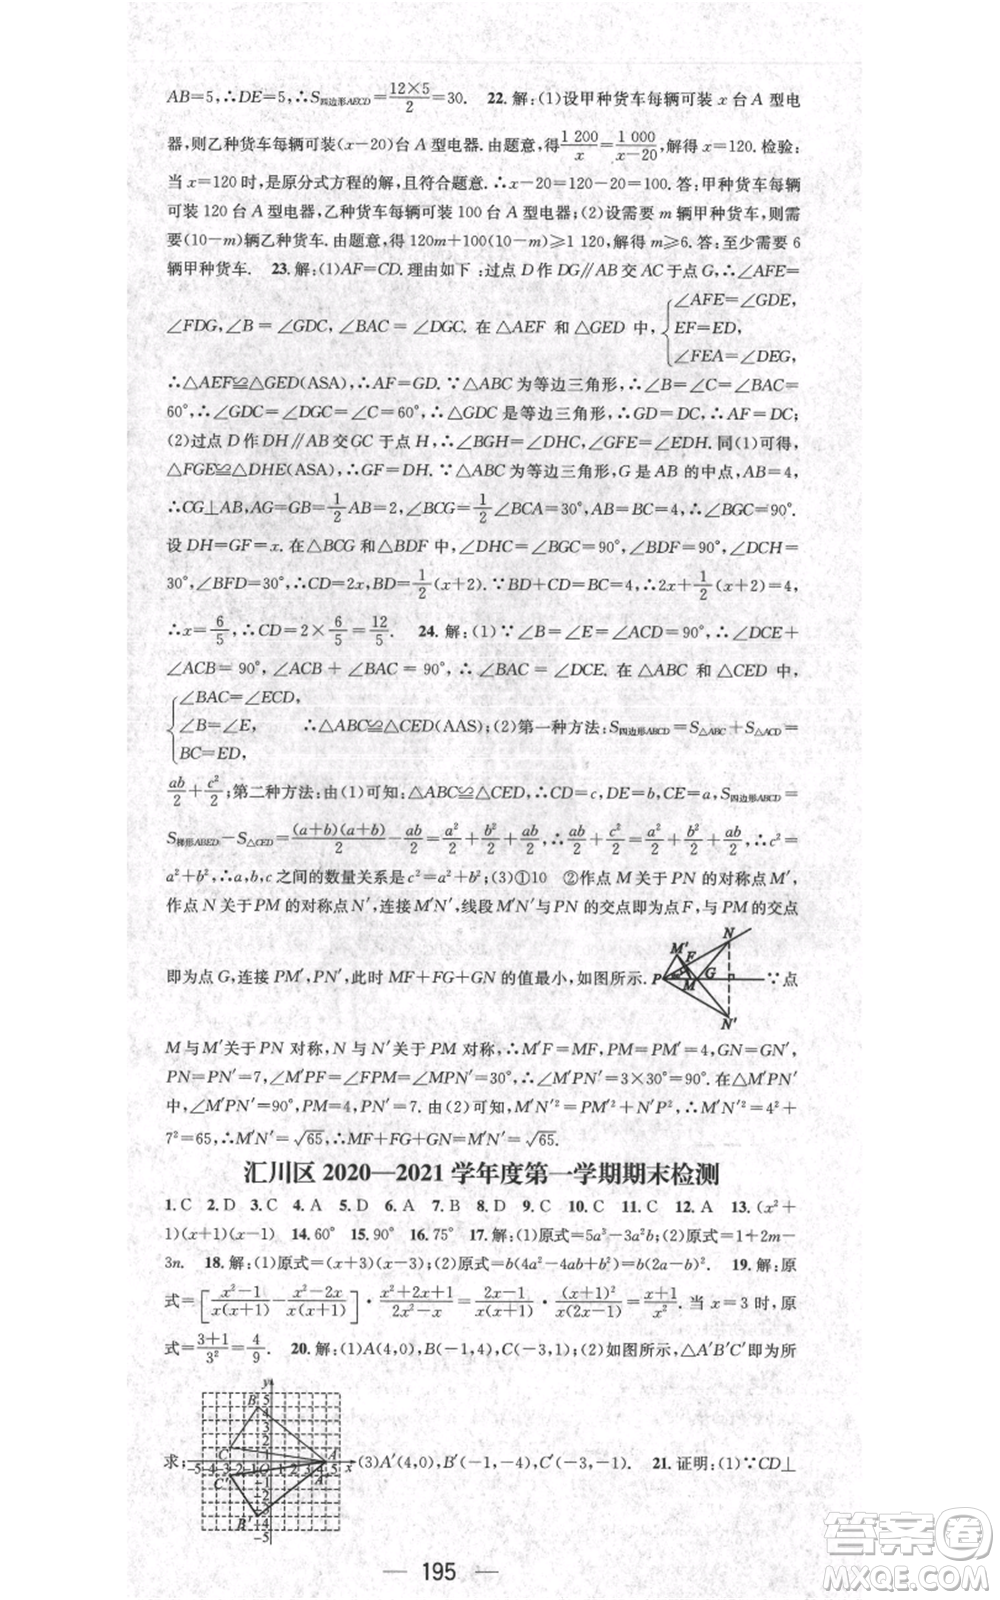 AB=5,∴DE=5,∴S四边形AECD=12×5/2=30. 22.解:(1)设甲种货车每辆可装 x 台 A 型电
器,则乙种货车每辆可装(x−20)台 A 型电器.由题意,得1 200/x=1 000/(x−20),解得 x=120.检验:
当 x=120 时,是原分式方程的解,且符合题意.∴x−20=120−20=100.答:甲种货车每辆
可装 120 台 A 型电器,乙种货车每辆可装 100 台 A 型电器;(2)设需要 m 辆甲种货车,则需
要(10−m)辆乙种货车.由题意,得 120m+100(10−m)≥1 120,解得 m≥6.答:至少需要 6
辆甲种货车. 23.解:(1)AF=CD.理由如下:过点 D 作 DG∥AB 交 AC 于点 G,∴∠AFE=
∠FDG,∠B=∠GDC,∠BAC=∠DGC.在△AEF 和△GED 中,{∠AFE=∠GDE,
EF=ED,
∠FEA=∠DEG,
∴△AEF≌△GED(ASA),∴AF=GD.∵△ABC 为等边三角形,∴∠B=∠C=∠BAC=
60°,∴∠GDC=∠DGC=∠C=60°,∴△GDC 是等边三角形,∴GD=DC,∴AF=DC;
(2)过点 D 作 DH∥AB 交 GC 于点 H,∴∠BGH=∠DHC,∠GFE=∠EDH.同(1)可得,
△FGE≌△DHE(ASA),∴GF=DH.∵△ABC 为等边三角形,G 是 AB 的中点,AB=4,
∴CG⊥AB,AG=GB=1/2AB=2,∠BCG=1/2∠BCA=30°,∠B=60°,∴∠BGC=90°.
设 DH=GF=x.在△BCG 和△BDF 中,∠DHC=∠BGC=90°,∠B=60°,∠DCH=
30°,∠BFD=30°,∴CD=2x,BD=1/2(x+2).∵BD+CD=BC=4,∴2x+1/2(x+2)=4,
∴x=6/5,∴CD=2×6/5=12/5. 24.解:(1)∵∠B=∠E=∠ACD=90°,∴∠DCE+
∠ACB=90°,∠ACB+∠BAC=90°,∴∠BAC=∠DCE.在△ABC 和△CED 中,
{∠BAC=∠ECD,
∠B=∠E, ∴△ABC≌△CED(AAS);(2)第一种方法:S四边形ABCD=S△ABC+S△ACD=
BC=ED,
ab/2+c²/2;第二种方法:由(1)可知:△ABC≌△CED,∴CD=c,DE=b,CE=a,S四边形ABCD=
S梯形ABED−S△CED=(a+b)(a+b)/2−ab/2=a²/2+b²/2+ab/2,∴ab/2+c²/2=a²/2+b²/2+ab/2,∴c²=
a²+b²,∴a,b,c 之间的数量关系是 c²=a²+b²;(3)①10 ②作点 M 关于 PN 的对称点 M′,
作点 N 关于 PM 的对称点 N′,连接 M′N′,线段 M′N′与 PN 的交点即为点 F,与 PM 的交点
即为点 G,连接 PM′,PN′,此时 MF+FG+GN 的值最小,如图所示. P M′ F N M G N′ ∵点
M 与 M′关于 PN 对称,N 与 N′关于 PM 对称,∴M′F=MF,PM=PM′=4,GN=GN′,
PN=PN′=7,∠M′PF=∠FPM=∠MPN′=30°,∴∠M′PN′=3×30°=90°.在△M′PN′
中,∠M′PN′=90°,PM=4,PN′=7.由(2)可知,M′N′²=PM′²+N′P²,∴M′N′²=4²+
7²=65,∴M′N′=√65,∴MF+FG+GN=M′N′=√65.
汇川区 2020—2021 学年度第一学期期末检测
1. C 2. D 3. C 4. A 5. D 6. A 7. B 8. D 9. C 10. C 11. C 12. A 13. (x²+
1)(x+1)(x−1) 14. 60° 15. 90° 16. 75° 17. 解:(1)原式=5a³−5a²b;(2)原式=1+2m−
3n. 18. 解:(1)原式=(x+3)(x−3);(2)原式=b(4a²−4ab+b²)=b(2a−b)². 19. 解:原
式=[x²−1/x(x+1)−x²−2x/x(x+1)]·x²+2x+1/2x²−x=2x−1/x(x+1)·(x+1)²/x(2x−1)=x+1/x².当 x=3 时,原
式=3+1/3²=4/9. 20. 解:(1)A(4,0),B(−1,4),C(−3,1);(2)如图所示,△A′B′C′即为所
求; y B 5 4 3 2 1 C A −5−4−3−2−1O 1 2 3 4 5 x C′ −1 A′ −2 −3 B′ −4 −5 (3)A′(4,0),B′(−1,−4),C′(−3,−1). 21.证明:(1)∵CD⊥
195
答案卷
MXQE.COM